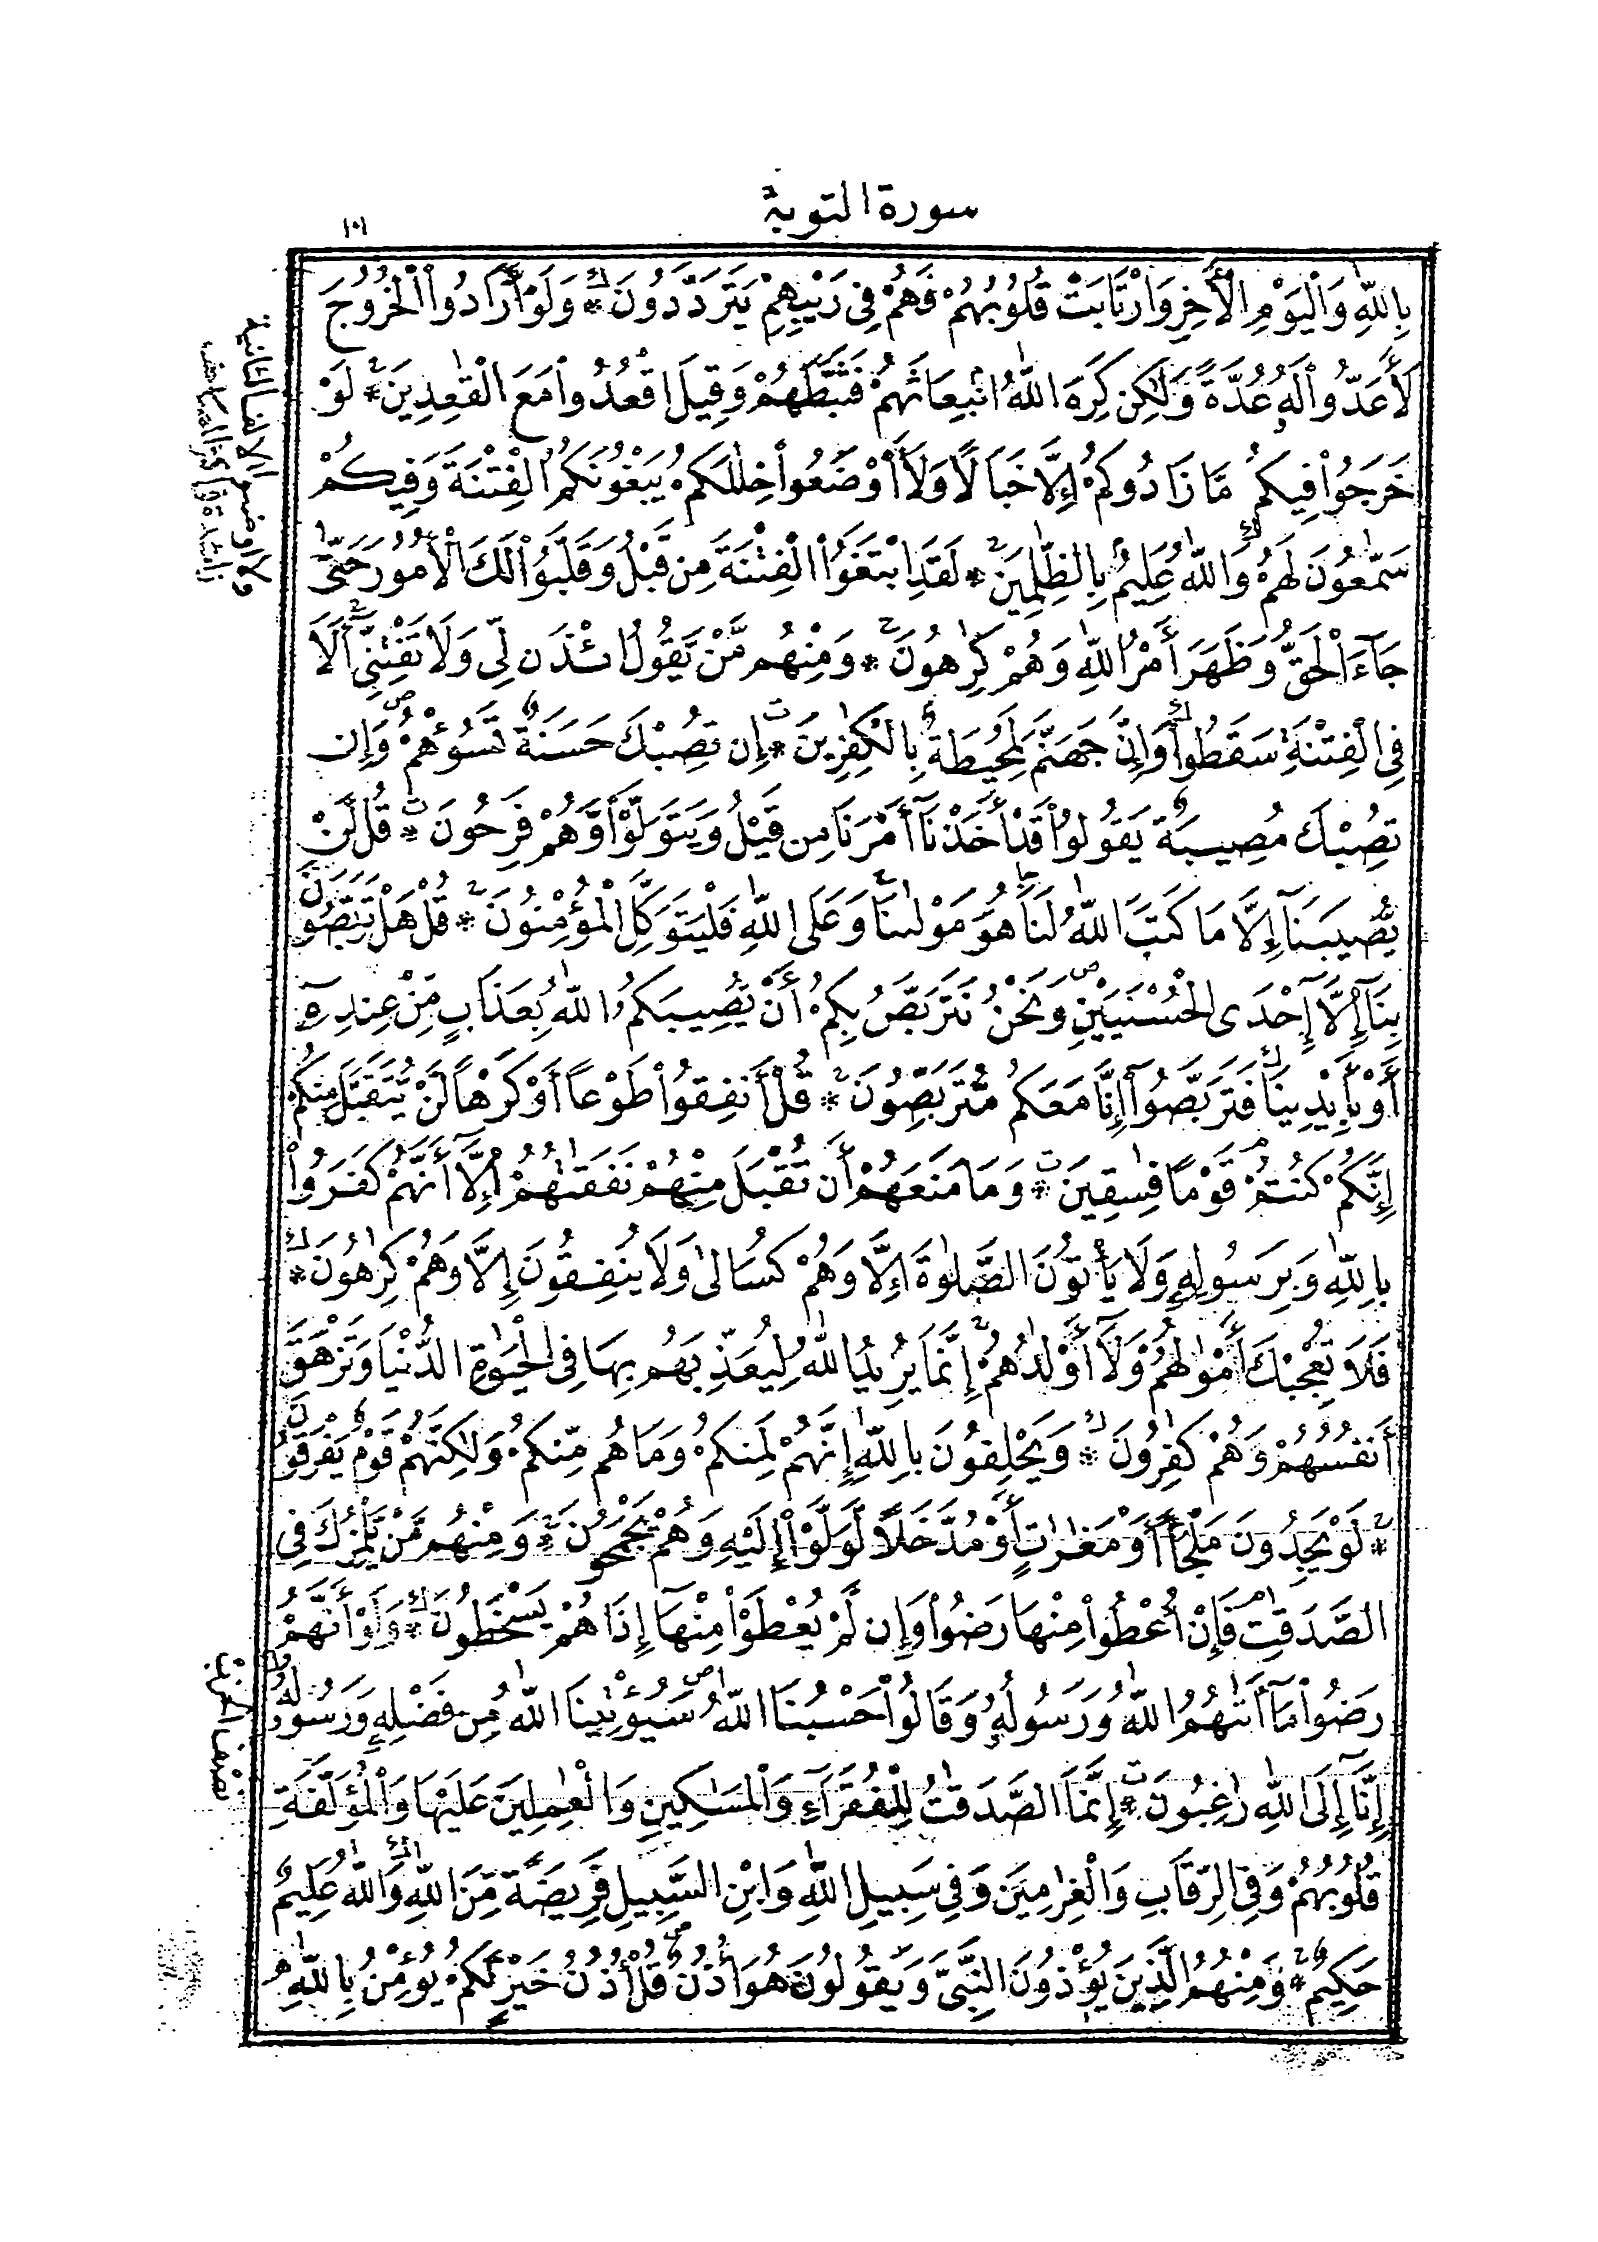 سورة التوبة
١٠١
بِاللّٰهِ وَالْيَوْمِ الْأٰخِرِ وَارْتَابَتْ قُلُوْبُهُمْ فَهُمْ فِى رَيْبِهِمْ يَتَرَدَّدُونَ ۞ وَلَوْ أَرَادُوا الْخُرُوجَ
لَأَعَدُّواْ لَهٗ عُدَّةً وَّلٰكِن كَرِهَ اللّٰهُ انۢبِعَاثَهُمْ فَثَبَّطَهُمْ وَقِيلَ اقْعُدُواْ مَعَ الْقٰعِدِينَ ۞ لَوْ
خَرَجُواْ فِيكُمْ مَّا زَادُوكُمْ إِلَّا خَبَالًا وَلَأَاْوْضَعُواْ خِلٰلَكُمْ يَبْغُونَكُمُ الْفِتْنَةَ وَفِيكُمْ
سَمّٰعُونَ لَهُمْ وَاللّٰهُ عَلِيمٌۢ بِالظّٰلِمِينَ ۞ لَقَدِ ابْتَغَوُاْ الْفِتْنَةَ مِن قَبْلُ وَقَلَّبُواْ لَكَ الْأُمُورَ حَتّٰى
جَآءَ الْحَقُّ وَظَهَرَ أَمْرُ اللّٰهِ وَهُمْ كٰرِهُونَ ۞ وَمِنْهُم مَّنْ يَّقُولُ ائْذَن لِّى وَلَا تَفْتِنِّى أَلَا
فِى الْفِتْنَةِ سَقَطُواْ وَإِنَّ جَهَنَّمَ لَمُحِيطَةٌۢ بِالْكٰفِرِينَ ۞ إِن تُصِبْكَ حَسَنَةٌ تَسُؤْهُمْ وَإِن
تُصِبْكَ مُصِيبَةٌ يَقُولُواْ قَدْ أَخَذْنَآ أَمْرَنَا مِن قَبْلُ وَيَتَوَلَّوْاْ وَّهُمْ فَرِحُونَ ۞ قُل لَّنْ
يُّصِيبَنَآ إِلَّا مَا كَتَبَ اللّٰهُ لَنَا هُوَ مَوْلٰىنَا وَعَلَى اللّٰهِ فَلْيَتَوَكَّلِ الْمُؤْمِنُونَ ۞ قُلْ هَلْ تَرَبَّصُونَ
بِنَآ إِلَّآ إِحْدَى الْحُسْنَيَيْنِ وَنَحْنُ نَتَرَبَّصُ بِكُمْ أَنْ يُّصِيبَكُمُ اللّٰهُ بِعَذَابٍ مِّنْ عِندِهٖٓ
أَوْ بِأَيْدِينَا فَتَرَبَّصُوٓاْ إِنَّا مَعَكُمْ مُّتَرَبِّصُونَ ۞ قُلْ أَنفِقُواْ طَوْعًا أَوْ كَرْهًا لَّنْ يُّتَقَبَّلَ مِنكُمْ
إِنَّكُمْ كُنتُمْ قَوْمًا فٰسِقِينَ ۞ وَمَا مَنَعَهُمْ أَن تُقْبَلَ مِنْهُمْ نَفَقٰتُهُمْ إِلَّآ أَنَّهُمْ كَفَرُواْ
بِاللّٰهِ وَبِرَسُولِهٖ وَلَا يَأْتُونَ الصَّلٰوةَ إِلَّا وَهُمْ كُسَالىٰ وَلَا يُنفِقُونَ إِلَّا وَهُمْ كٰرِهُونَ ۞
فَلَا تُعْجِبْكَ أَمْوٰلُهُمْ وَلَآ أَوْلٰدُهُمْ إِنَّمَا يُرِيدُ اللّٰهُ لِيُعَذِّبَهُم بِهَا فِى الْحَيٰوةِ الدُّنْيَا وَتَزْهَقَ
أَنفُسُهُمْ وَهُمْ كٰفِرُونَ ۞ وَيَحْلِفُونَ بِاللّٰهِ إِنَّهُمْ لَمِنكُمْ وَمَا هُم مِّنكُمْ وَلٰكِنَّهُمْ قَوْمٌ يَفْرَقُونَ
۞ لَوْ يَجِدُونَ مَلْجَـًٔا أَوْ مَغٰرٰتٍ أَوْ مُدَّخَلًا لَّوَلَّوْاْ إِلَيْهِ وَهُمْ يَجْمَحُونَ ۞ وَمِنْهُم مَّنْ يَّلْمِزُكَ فِى
الصَّدَقٰتِ فَإِنْ أُعْطُواْ مِنْهَا رَضُواْ وَإِن لَّمْ يُعْطَوْاْ مِنْهَآ إِذَا هُمْ يَسْخَطُونَ ۞ وَلَوْ أَنَّهُمْ
رَضُواْ مَآ اٰتٰىهُمُ اللّٰهُ وَرَسُولُهٗ وَقَالُواْ حَسْبُنَا اللّٰهُ سَيُؤْتِينَا اللّٰهُ مِن فَضْلِهٖ وَرَسُولُهٗٓ
إِنَّآ إِلَى اللّٰهِ رٰغِبُونَ ۞ إِنَّمَا الصَّدَقٰتُ لِلْفُقَرَآءِ وَالْمَسٰكِينِ وَالْعٰمِلِينَ عَلَيْهَا وَالْمُؤَلَّفَةِ
قُلُوبُهُمْ وَفِى الرِّقَابِ وَالْغٰرِمِينَ وَفِى سَبِيلِ اللّٰهِ وَابْنِ السَّبِيلِ فَرِيضَةً مِّنَ اللّٰهِ وَاللّٰهُ عَلِيمٌ
حَكِيمٌ ۞ وَمِنْهُمُ الَّذِينَ يُؤْذُونَ النَّبِىَّ وَيَقُولُونَ هُوَ أُذُنٌ قُلْ أُذُنُ خَيْرٍ لَّكُمْ يُؤْمِنُ بِاللّٰهِ
ولا اوضعوا الالف الثانية
نصف الحزب